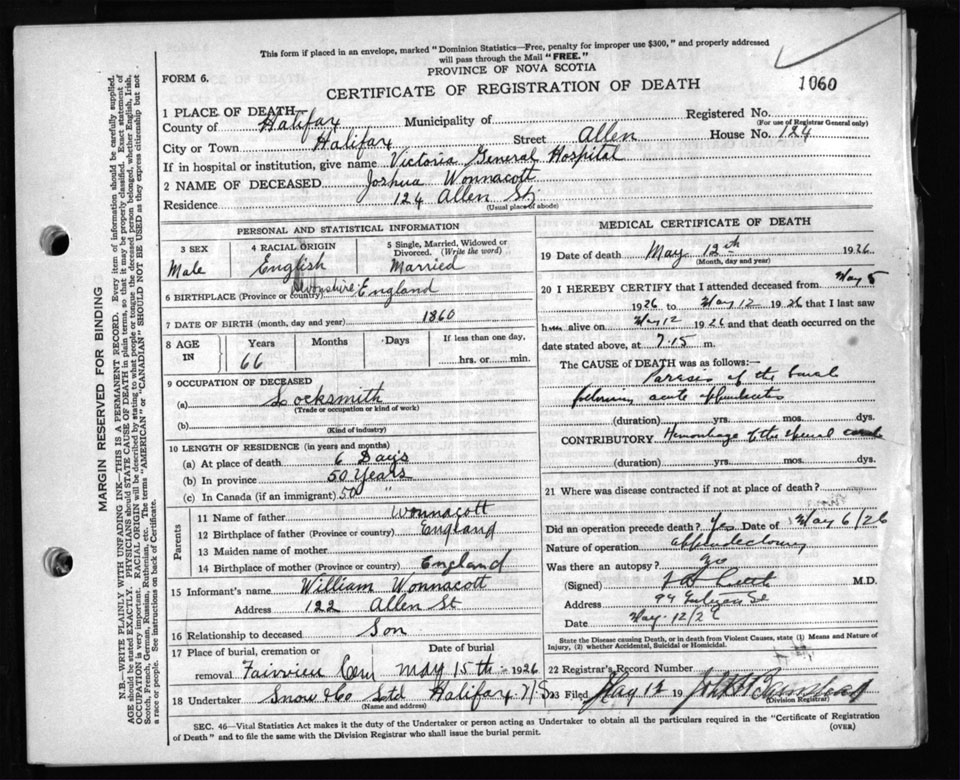 This form if placed in an envelope, marked "Dominion Statistics—Free, penalty for improper use $300," and properly addressed
will pass through the Mail "FREE."
PROVINCE OF NOVA SCOTIA
FORM 6.
CERTIFICATE OF REGISTRATION OF DEATH
1060
1 PLACE OF DEATH
County of Halifax Municipality of Registered No.
(For use of Registrar General only)
City or Town Halifax Street Allen House No. 124
If in hospital or institution, give name Victoria General Hospital
2 NAME OF DECEASED Joshua Wonnacott
Residence 124 Allen St
(Usual place of abode)
PERSONAL AND STATISTICAL INFORMATION
3 SEX 4 RACIAL ORIGIN 5 Single, Married, Widowed or
Divorced. (Write the word)
Male English Married
6 BIRTHPLACE (Province or country) Devonshire England
7 DATE OF BIRTH (month, day and year) 1860
8 AGE IN Years Months Days If less than one day,
66 hrs. or min.
9 OCCUPATION OF DECEASED
(a) Locksmith
(Trade or occupation or kind of work)
(b)
(Kind of industry)
10 LENGTH OF RESIDENCE (in years and months)
(a) At place of death 6 Days
(b) In province 50 Years
(c) In Canada (if an immigrant) 50 "
Parents
11 Name of father Wonnacott
12 Birthplace of father (Province or country) England
13 Maiden name of mother
14 Birthplace of mother (Province or country) England
15 Informant's name William Wonnacott
Address 122 Allen St
16 Relationship to deceased Son
17 Place of burial, cremation or Date of burial
removal Fairview Cem May 15th 1926
18 Undertaker Snow & Co Ltd Halifax N.S
(Name and address)
MEDICAL CERTIFICATE OF DEATH
19 Date of death May 12th 1926
(Month, day and year)
20 I HEREBY CERTIFY that I attended deceased from May 5
1926 to May 12 1926 that I last saw
him alive on May 12 1926 and that death occurred on
date stated above, at 7.15 m.
The CAUSE of DEATH was as follows:—
Paresis of the bowel
following acute appendicitis
(duration) yrs. mos. dys.
CONTRIBUTORY Hemorrhage of the
(duration) yrs. mos. dys.
21 Where was disease contracted if not at place of death?
Did an operation precede death? Yes Date of May 6/26
Nature of operation appendectomy
Was there an autopsy? no
(Signed) M.D.
Address 99
Date May 12/26
State the Disease causing Death, or in death from Violent Causes, state (1) Means and Nature of
Injury, (2) whether Accidental, Suicidal or Homicidal.
22 Registrar's Record Number
23 Filed May 12 19
(Division Registrar)
SEC. 46—Vital Statistics Act makes it the duty of the Undertaker or person acting as Undertaker to obtain all the particulars required in the "Certificate of Registration
of Death" and to file the same with the Division Registrar who shall issue the burial permit. (OVER)
MARGIN RESERVED FOR BINDING
N.B.—WRITE PLAINLY WITH UNFADING INK—THIS IS A PERMANENT RECORD. Every item of information should be carefully supplied.
AGE should be stated EXACTLY. PHYSICIANS should STATE CAUSE OF DEATH in plain terms, so that it may be properly classified. Exact statement of
OCCUPATION is very important. RACIAL ORIGIN will be described by stating to what people or tongue the deceased person belonged, whether English, Irish,
Scotch, French, German, Russian, Ruthenian, etc. The terms "AMERICAN" or "CANADIAN" SHOULD NOT BE USED as they express citizenship but not
a race or people. See instructions on back of Certificate.